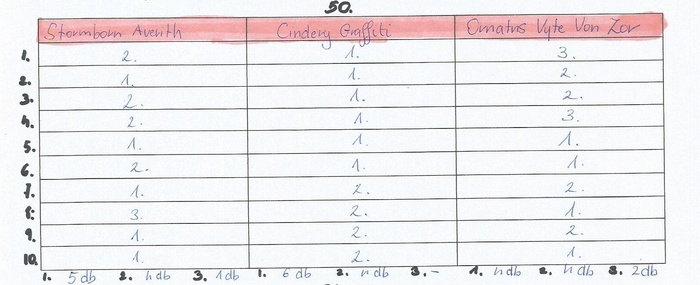 50.
Stormborn Averith Cindery Graffiti Ornatus Vyte Von Zor
1. 2. 1. 3.
2. 1. 1. 2.
3. 2. 1. 2.
4. 2. 1. 3.
5. 1. 1. 1.
6. 2. 1. 1.
7. 1. 2. 2.
8. 3. 2. 1.
9. 1. 2. 2.
10. 1. 2. 1.
1. 5 db 2. 4 db 3. 1 db 1. 6 db 2. 4 db 3. - 1. 4 db 2. 4 db 3. 2 db